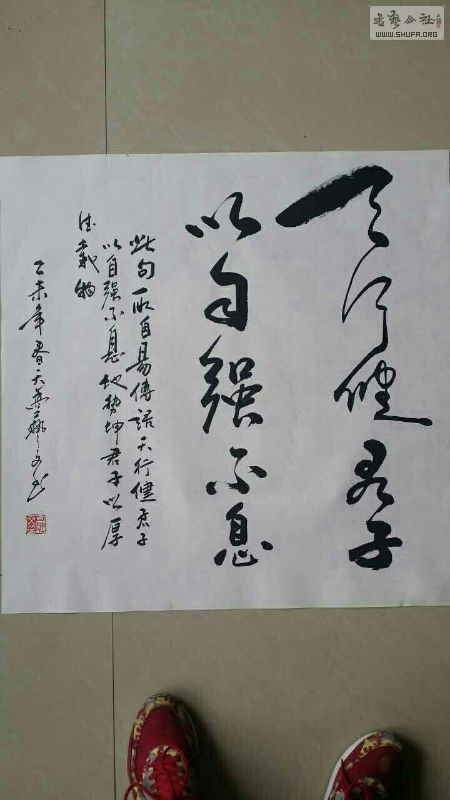 天行健君子
以自强不息
此句取自易傳語天行健君子
以自强不息地势坤君子以厚
德載物
乙未年春天
書艺公社
WWW.SHUFA.ORG